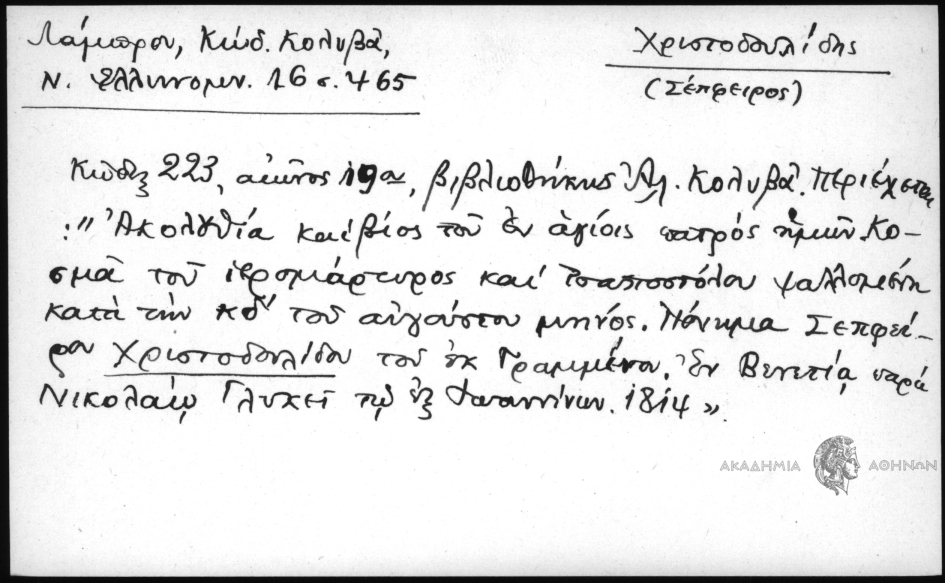 Λάμπρου, Κώδ. Κολυβᾶ,
Ν. Ἑλληνομν. 16 σ. 465
Χριστοδουλίδης
(Σέπφειρος)
Κῶδιξ 223, αἰῶνος 19ου, βιβλιοθήκης Ἀλ. Κολυβᾶ. Περιέχεται
: " Ἀκολουθία καὶ βίος τοῦ ἐν ἁγίοις πατρός ἡμῶν Κο-
σμᾶ τοῦ ἱερομάρτυρος καὶ ἰσαποστόλου ψαλλομένη
κατὰ τὴν κδ' τοῦ αὐγούστου μηνός. Πόνημα Σεπφεί-
ρου Χριστοδουλίδου τοῦ ἐκ Γραμμένου. Ἐν Βενετίᾳ παρὰ
Νικολάῳ Γλυκεῖ τῷ ἐξ Ἰωαννίνων. 1814 ".
ΑΚΑΔΗΜΙΑ ΑΘΗΝΩΝ